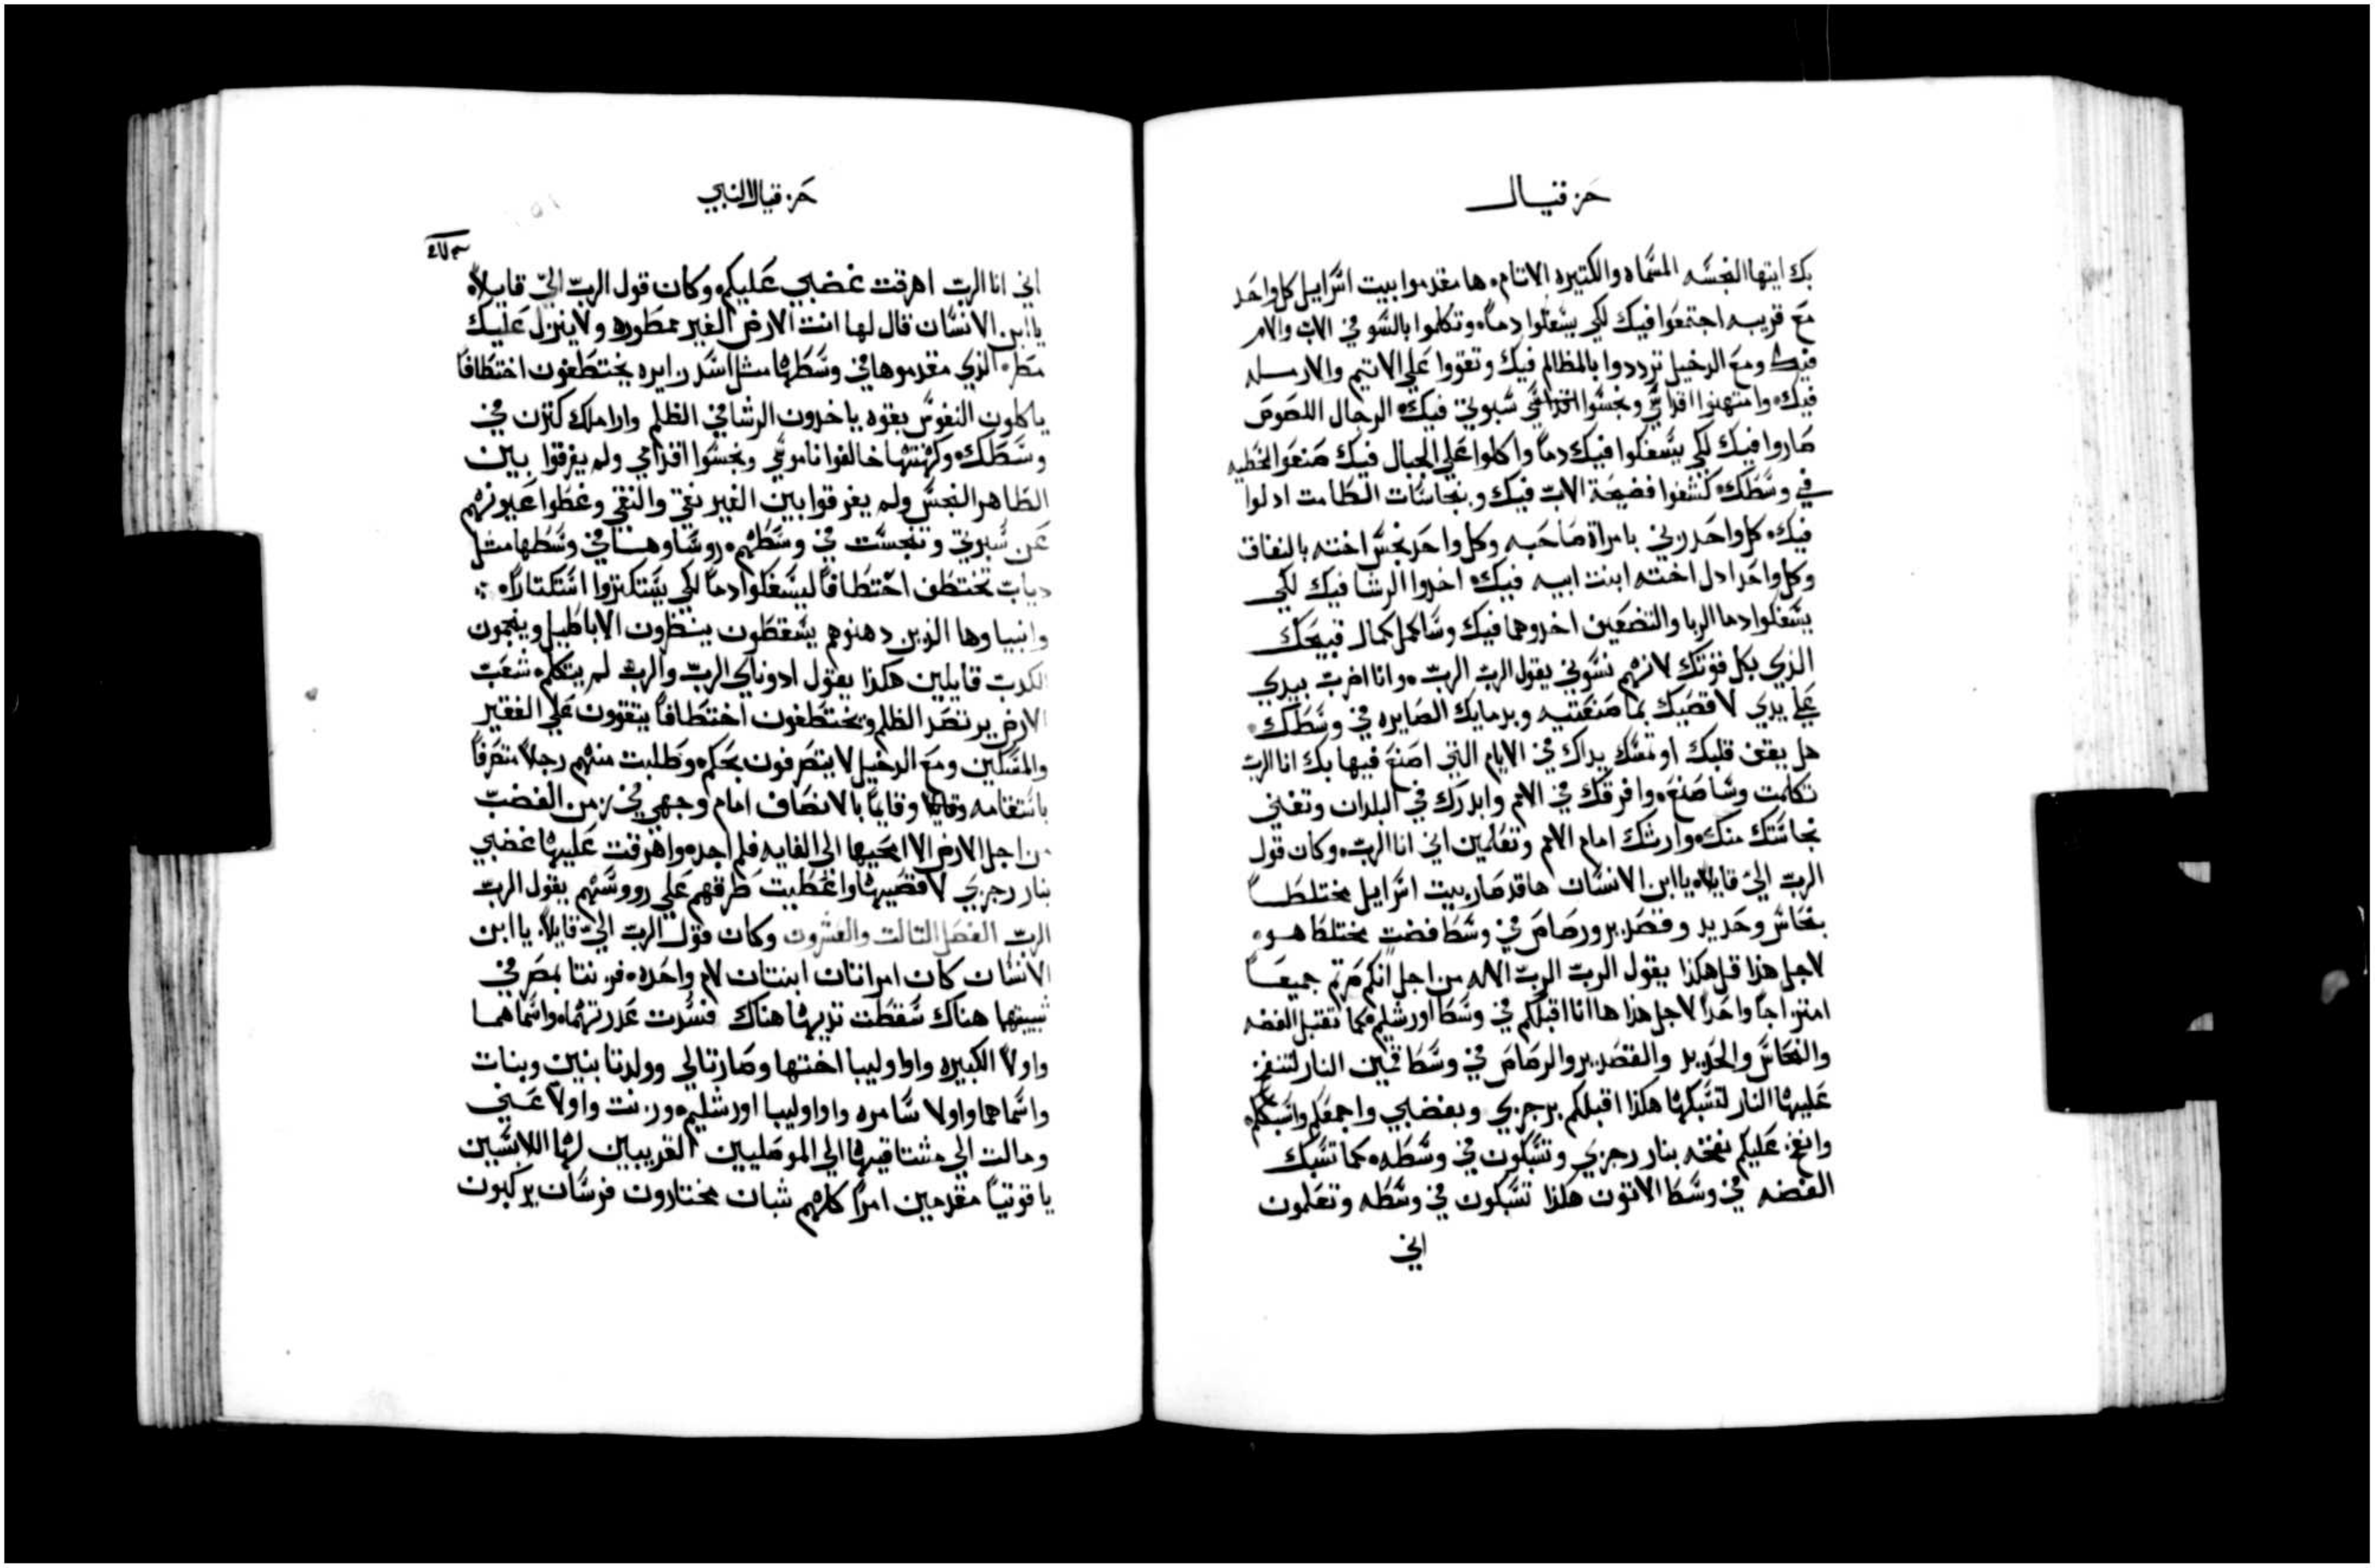 حزقيال
بك ايتها النجسه المسماه والكتيره الاتام. ها مقدموا بيت اسرايل كل واحد
مع قريبه اجتمعوا فيك لكي يسفكوا دماً. وتكلموا بالسو في الاب والام
فيك ومع الدخيل ترددوا بالمظالم فيك وتقووا علي اليتيم والارمله
فيك. وامتهنوا اقداسي ونجسوا سبوتي فيك. الرجال اللصوص
صاروا فيك لكي يسفكوا فيك دماً واكلوا علي الجبال فيك صنعوا الخطيه
في وسطك. كشفوا فضيحة الاب فيك وبنجاسات الطامت ادلوا
فيك. كل واحد زني بامراة صاحبه وكل واحد نجس اخته بالنفاق
وكل واحد ادل اخته ابنت ابيه فيك. اخدوا الرشا فيك لكي
يسفكوا دما الربا والتضعين اخدوهما فيك وساكمل كمال قبيحك
الذي بكل قوتك لانهم نسوني يقول الرب الرب. وانا اضرب بيدي
علي يدي لاقضيك بما صنعتيه وبدمايك الصايره في وسطك.
هل يقف قلبك او تمسك يداك في الايام التي اصنع فيها بك انا الرب
تكلمت وساصنع. وافرقك في الامم وابدرك في البلدان وتفني
نجاستك منك. وارثك امام الامم وتعلمين اني انا الرب. وكان قول
الرب الي قايلاً. ياابن الانسان ها قد صار بيت اسرايل مختلطاً
بنحاس وحديد وقصدير ورصاص في وسط فضت مختلطا هو.
لاجل هذا قل هكذا يقول الرب الرب الاله من اجل انكم صرتم جميعاً
امتزاجاً واحداً لاجل هذا ها انا اقبلكم في وسط اورشليم. كما تقتبل الفضه
والنحاس والحديد والقصدير والرصاص في وسط قمين النار لتنفخ
عليها النار لتسبكها هكذا اقبلكم برجزي وبغضبي واجمعكم واسبككم.
وانفخ عليكم نفخه بنار رجزي وتسبكون في وسطه. كما تسبك
الفضه في وسط الاتون هكذا تسبكون في وسطه وتعلمون
اني
حزقيال النبي
اني انا الرب اهرقت غضبي عليكم. وكان قول الرب الي قايلاً.
ياابن الانسان قال لها انت الارض الغير ممطوره ولا ينزل عليك
مطر. الذي مقدموها في وسطها مثل اسد زايره يختطفون اختطافاً
ياكلون النفوس بقوه ياخدون الرشا في الظلم واراملك كتزن في
وسطك. وكهنتها خالفوا ناموسي ونجسوا اقداسي ولم يفرقوا بين
الطاهر النجس ولم يفرقوا بين الغير نقي والنقي وغطوا عيونهم
عن سبوتي وتنجست في وسطهم. روساوها في وسطها مثل
دياب تختطف اختطافاً ليسفكوا دماً لكي يستكتروا استكتاراً.
وانبياوها الذين دهنوهم يسقطون ينظرون الاباطيل وينجمون
الكدب قايلين هكذا يقول ادوناي الرب والرب لم يتكلم. شعب
الارض يرتصد الظلم ويختطفون اختطافاً يتقوون علي الفقير
والمسكين ومع الدخيل لا يتصرفون بحكم. وطلبت منهم رجلاً متصرفاً
باستقامه وقايماً بالانصاف امام وجهي في زمن الغضب
من اجل الارض الا امحيها الي الغايه فلم اجده. واهرقت عليها غضبي
بنار رجزي لافضيها واعطيت طرقهم علي رووسهم يقول الرب
الرب الفصل التالت والعشرون وكان قول الرب الي قايلاً. ياابن
الانسان كان امراتان ابنتان لام واحده. فزنتا بمصر في
شبيبتهما هناك سقطت تديها هناك فسدت عدرتهما. واسماهما
واولا الكبيره واواوليبا اختها وصارتا لي وولدتا بنين وبنات
واسماهما واولا سامره واواوليبا اورشليم. وزنت واولا عني
ومالت الي مشتاقيها الي الموصليين القريبين لها اللابسين
ياقوتياً مقدمين امراً كلهم شبان مختارون فرسان يركبون